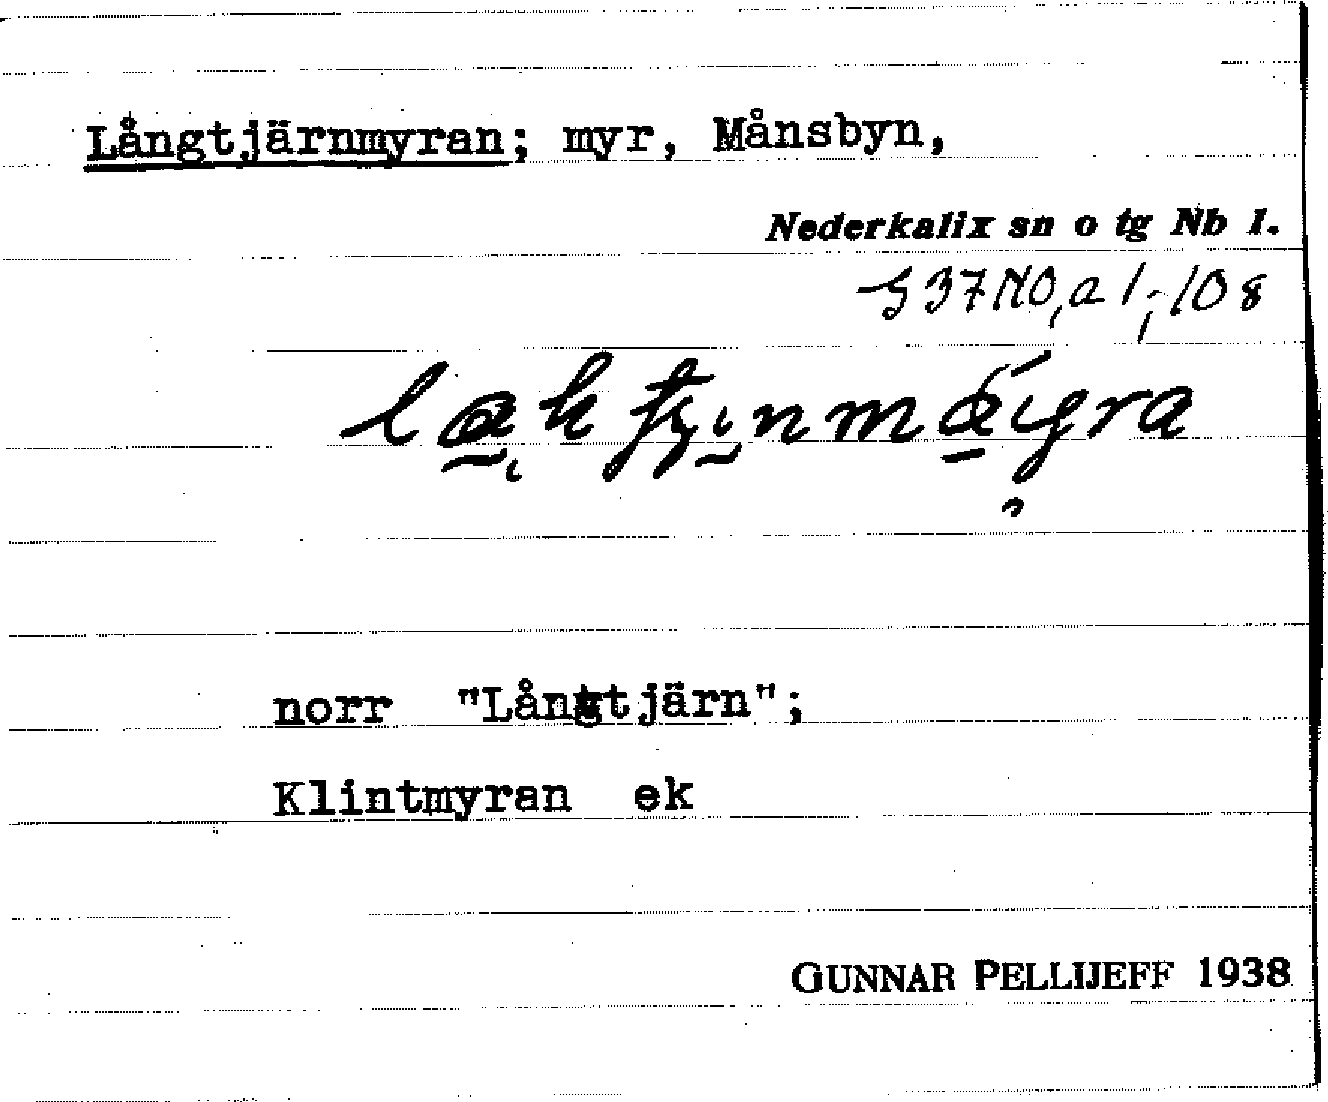 Långtjärnmyran; myr, Månsbyn,
Nederkalix sn o tg Nb l.
norr "Långtjärn";
Klintmyran ek
GUNNAR PELLIJEFF 1938